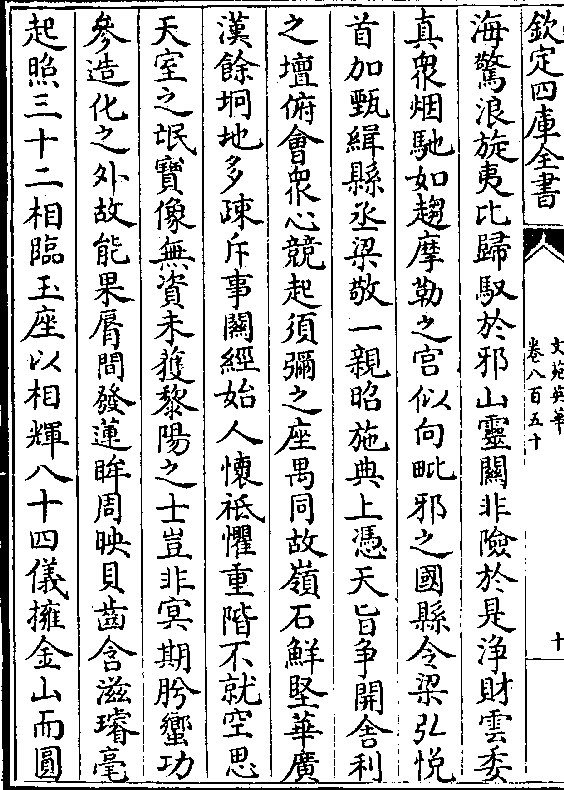 欽定四庫全書
文苑英華
卷八百五十
十
海驚浪旋夷比歸馭於邪山靈關非險於是浄財雲委
真衆烟馳如趨摩勒之宮似向毗邪之國縣令梁弘悦
首加甄緝縣丞梁敬一親昭施典上憑天旨争開舎利
之壇俯會衆心競起須彌之座禺同故嶺石鮮堅華廣
漢餘坰地多疎斥事闗經始人懐祗懼重階不就空思
天室之氓寶像無資未獲黎陽之士豈非冥期肸蠁功
參造化之外故能果脣間發蓮眸周映貝齒含滋璿毫
起照三十二相臨玉座以相輝八十四儀擁金山而圓